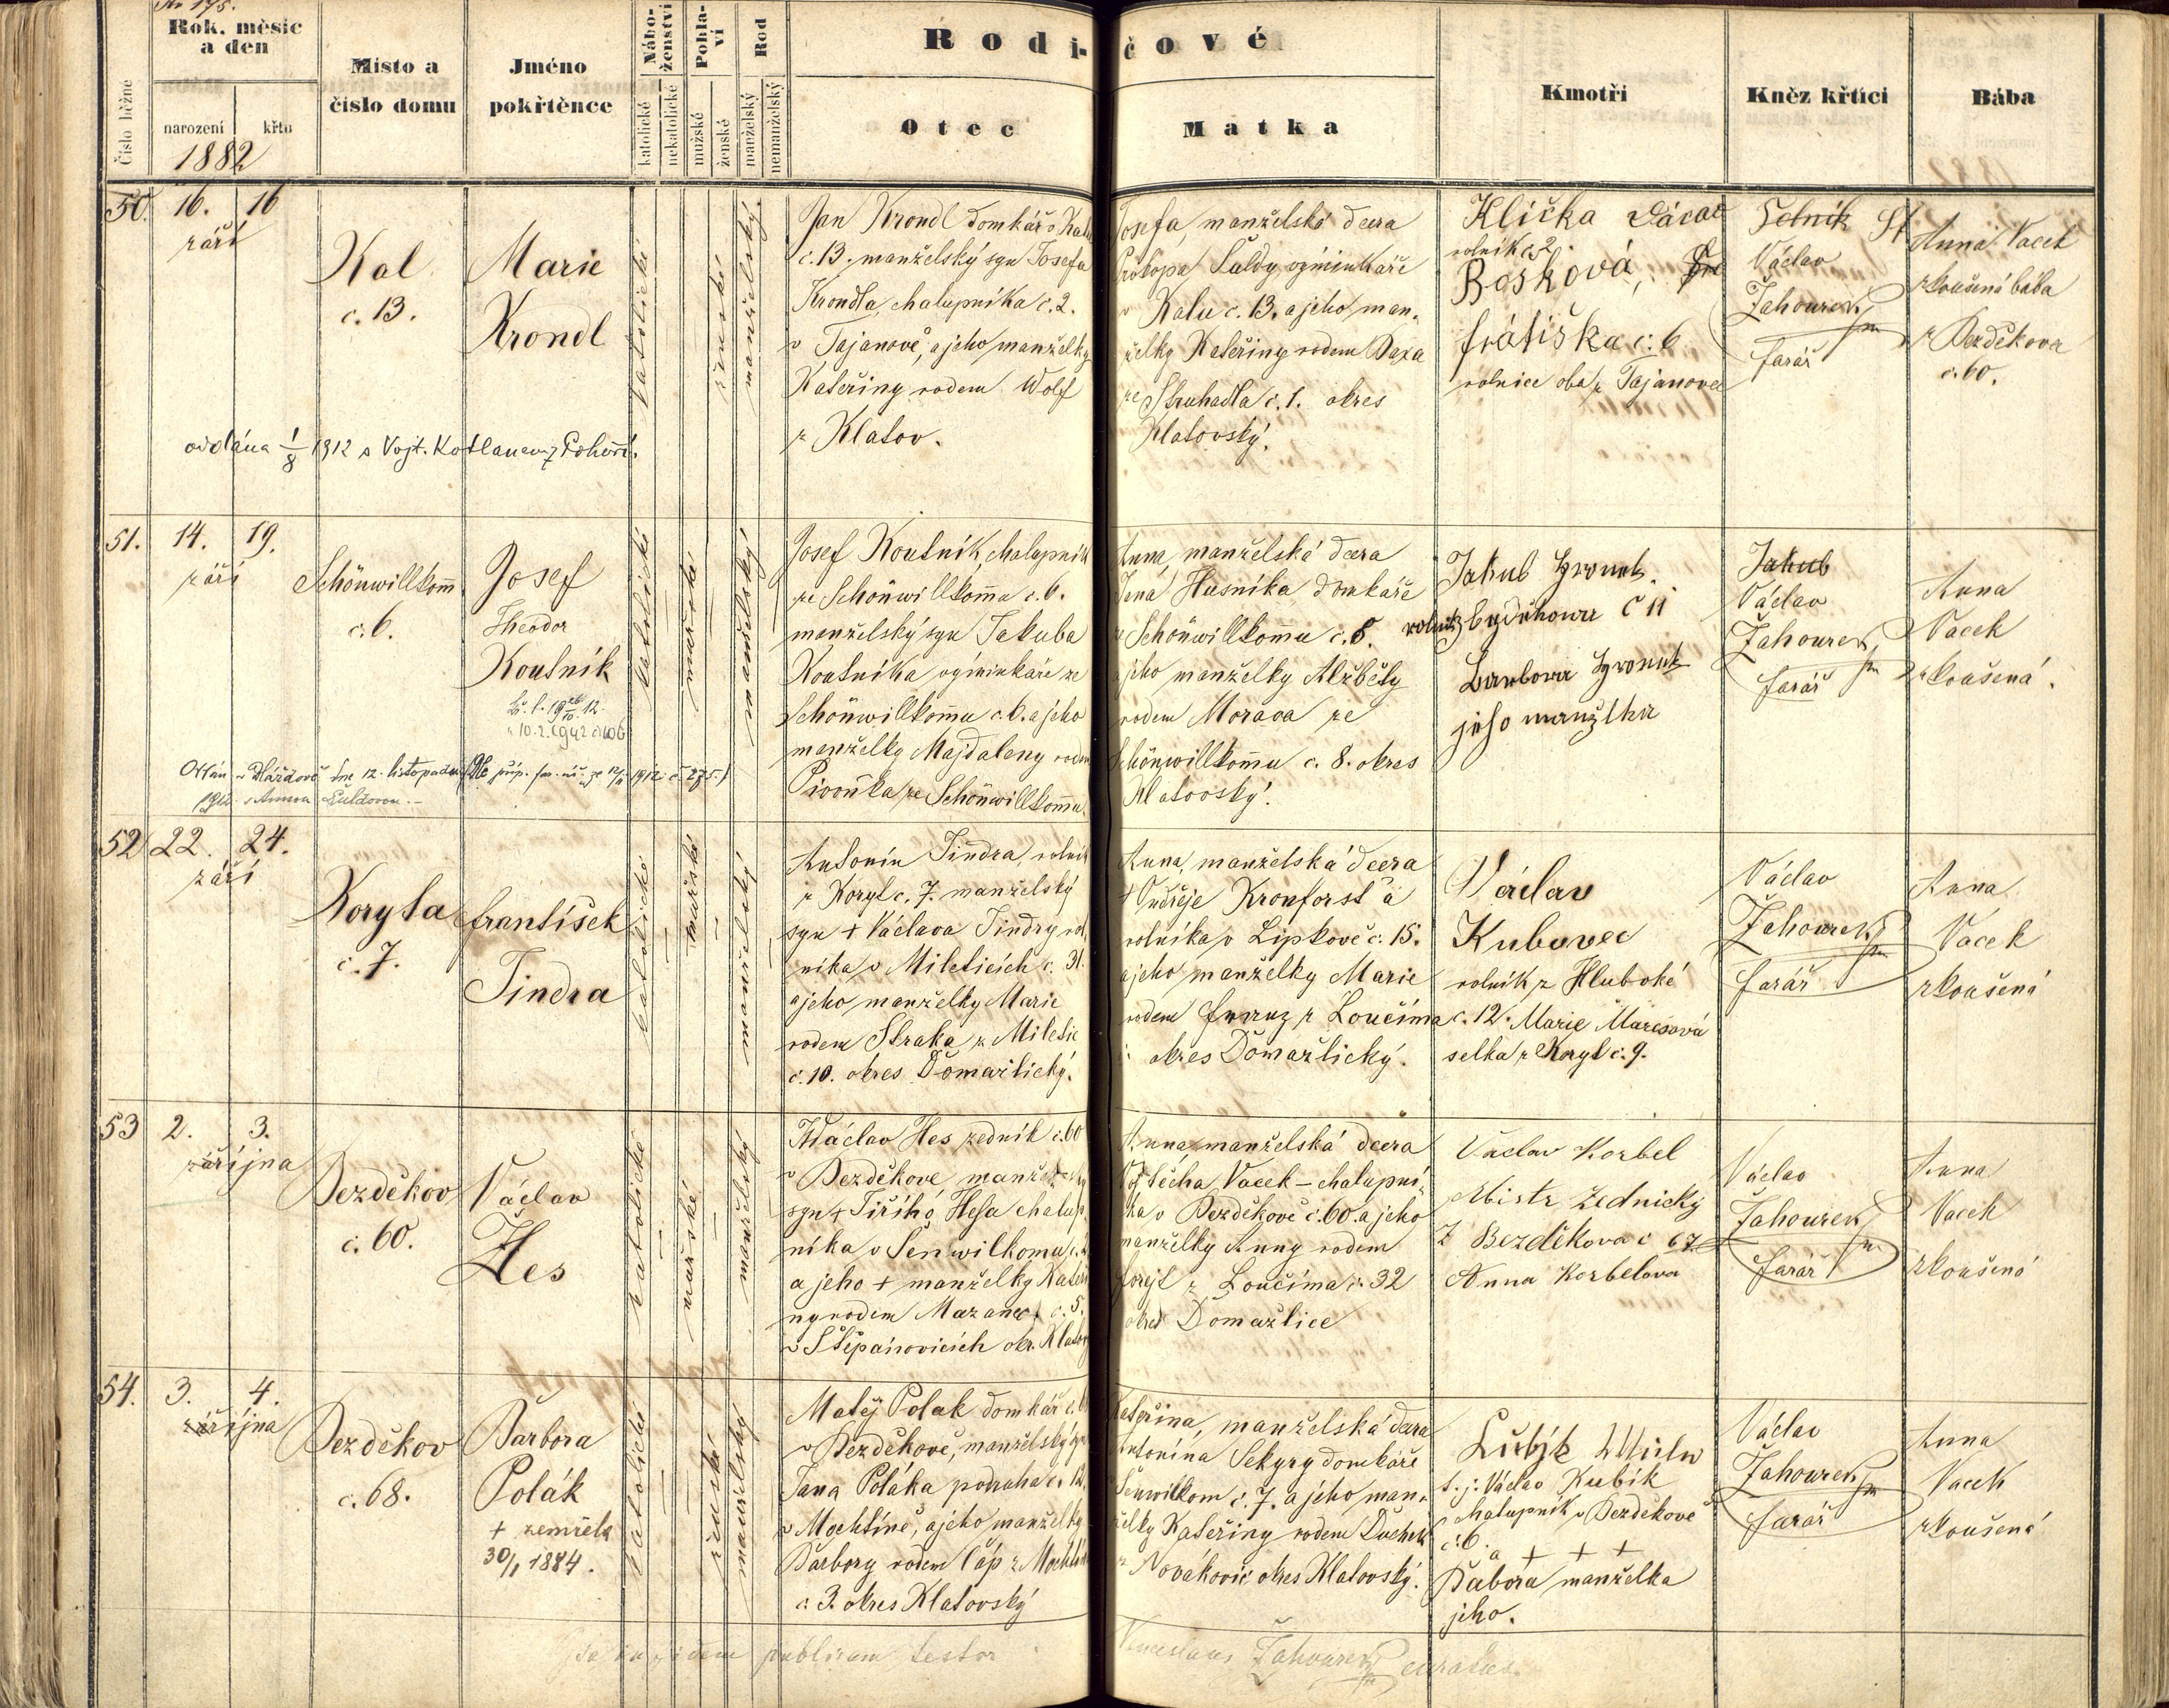 Rok, měsíc
a den
narození
křtu
1882
Číslo běžné
Místo a
číslo domu
Jméno
pokřtěnce
Nábo-
ženství
katolické
nekatolické
Pohla-
ví
mužské
ženské
Rod
manželský
nemanželský
Rodi-
čové
Otec
Matka
Kmotři
Kněz křtící
Bába
50.
16.
16
září
Kal
č. 13.
Marie
Krondl
katolické
ženské
manželský
Jan Krondl domkář v Kalu
č. 13. manželský syn Josefa
Krondla, chalupníka č. 2.
v Tajanově, a jeho manželky
Kateřiny rodem Wolf
z Klatov.
Josefa, manželská dcera
Prokopa Šuldy výminkáře
v Kalu č. 13. a jeho man-
želky Kateřiny rodem Baxa
ze Struhadla č. 1. okres
Klatovský.
Klička
rolník č. 2.
Bosková,
frátiška č: 6
rolnice oba z Tajanova
Václav
Žahourek
farář
Anna Vacek
zkoušená bába
z Bezděkova
č. 60.
oddána 1/8 1912 s Vojt. Kotlanem z Pohoří.
51.
14.
19.
září
Schönwillkom̅
č. 6.
Josef
Theodor
Koutník
katolické
mužské
manželský
Josef Koutník, chalupník
ze Schönwillkom̅u č. 6.
manželský syn Jakuba
Koutníka výminkáře ze
Schönwillkom̅u č. 6. a jeho
manželky Majdaleny rodem
Pivoňka ze Schönwillkom̅u
Anna, manželská dcera
Jana Husníka domkáře
ze Schönwillkom̅u č. 5.
a jeho manželky Alžběty
rodem Morava ze
Schönwillkom̅u č. 8. okres
Klatovský.
Jakub
č 11
Barbora
jeho manželka
Jakub
Václav
Žahourek
farář
Anna
Vacek
zkoušená.
dne 12. listopadu
1912 s Annou Šuldovou.-
52
22.
24.
září
Koryta
č. 7.
František
Jindra
katolické
mužské
manželský
Antonín Jindra, rolník
z Koryt č. 7. manželský
syn + Václava Jindry rol
níka v Mileticích č. 31.
a jeho manželky Marie
rodem Straka z Miletic
č. 10. okres Domažlický.
Anna, manželská dcera
+ Ondřeje Kronforst a
rolníka v Lipkově č. 15.
a jeho manželky Marie
rodem z Loučima
okres Domažlický.
Václav
Kubovec
rolník z Hluboké
č. 12. Marie Marešová
selka z Koryt č. 9.
Václav
Žahourek
farář
Anna
Vacek
zkoušená
53
2.
3.
října
Bezděkov
č. 60.
Václav
Hes
katolické
mužské
manželský
Václav Hes zedník č. 60
v Bezděkově manželský
syn + Jiřího Hesa chalup-
níka v Šenwilkomu
a jeho + manželky Kateři
ny rodem Mazanec č. 5.
v Štěpánovicích okr. Klatov
Anna, manželská dcera
Vojtěcha Vacek - chalupní-
ka v Bezděkově č. 60. a jeho
manželky Anny rodem
Forejt z Loučima č. 32
okres Domažlice
Václav Korbel
Mistr Zednický
Z Bezděkova č 67
Anna Korbelova
Václav
Žahourek
farář
Anna
Vacek
zkoušená
54.
3.
4.
října
Bezděkov
č. 68.
Barbora
Polák
+ zemřela
30/1 1884.
katolické
ženské
manželský
Matěj Polak domkář
v Bezděkově, manželský syn
Jana Poláka podruha č. 12.
v Mochtíně, a jeho manželky
Barbory rodem Čáp z Mochtína
č. 3. okres Klatovský
Kateřina, manželská dcera
Antonína Sekyry domkáře
Šenwilkom č. 7. a jeho man-
želky Kateřiny rodem Duchek
z Novákovic okres Klatovský.
t. j. Václav Kubík
chalupník v Bezděkově
č: 6.
a + + +
Babora manželka
jeho.
Václav
Žahourek
farář
Anna
Vacek
zkoušená
fidem publicam testor
Venceslaus Žahourek curatus.